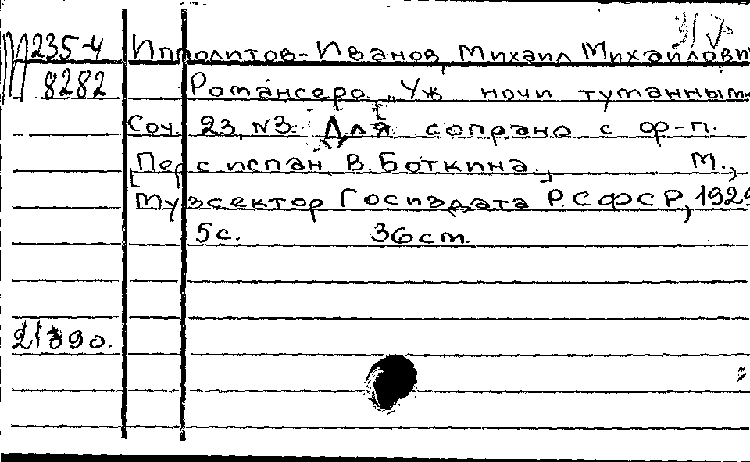 317
М 235-4 Ипполитов-Иванов, Михаил Михайлови
8282 Романсеро. „Уж ночи туманным
Соч. 23, N3. Для сопрано с ф-п.
[Пер. с испан В. Боткина. М.,
Музсектор Госиздата РСФСР, 192
5с. 36 cm.